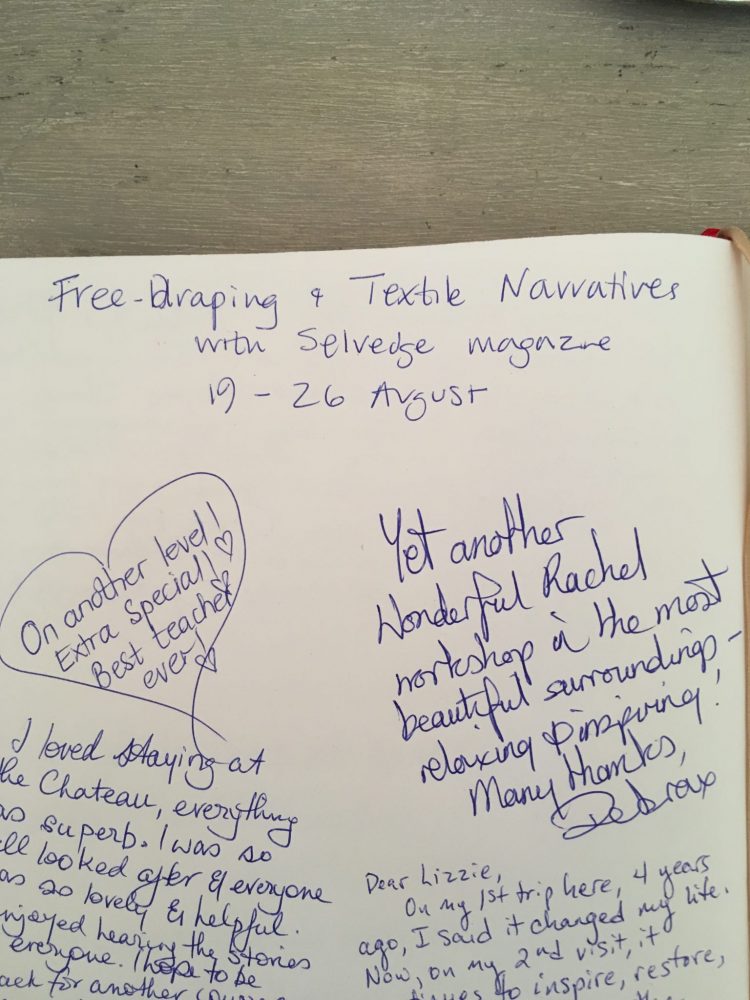 Free-Draping & Textile Narratives
with Selvedge magazine
19 - 26 August
On another level!
Extra Special!
Best teacher
ever!
Yet another
Wonderful Rachel
workshop in the most
beautiful surroundings -
relaxing & inspiring!
Many thanks,
I loved staying at
the Chateau, everything
was superb. I was so
well looked after & everyone
was so lovely & helpful.
enjoyed hearing the stories
everyone. I hope to be
back for another course
Dear Lizzie,
On my 1st trip here, 4 years
ago, I said it changed my life.
Now, on my 2nd visit, it
to inspire, restore,